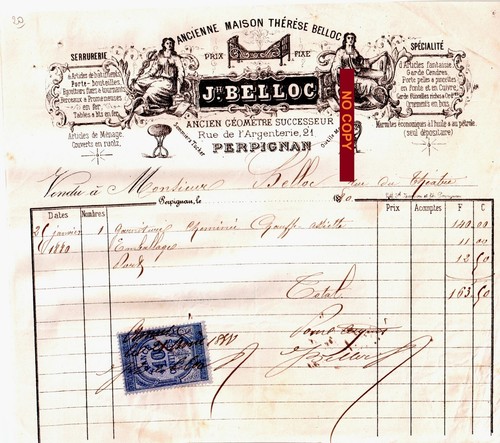 20
ANCIENNE MAISON THÉRÈSE BELLOC
SERRURERIE
PRIX FIXE
SPÉCIALITÉ
Articles de bâtiments
Porte-bouteilles
en fer
Tables & lits en fer
Articles de Ménage
Couverts en ruolz
JH BELLOC
d'Articles fantaisie
Garde Cendres
Porte pelles & pincettes
en fonte et en Cuivre
Ornements en bois
Marmites économiques à l'huile & au pétrole
(seul dépositaire)
ANCIEN GÉOMÈTRE SUCCESSEUR
Rue de l'Argenterie, 21
PERPIGNAN
NO COPY
Vendu à Monsieur Belloc rue du Théâtre
Perpignan, le 18 80
Dates Nombres Prix Acomptes F C
janvier 1 garniture cheminée 140 00
1880 Emballages 11 00
Port 12 50
Total 163 50
Pour acquit
Belloc
10